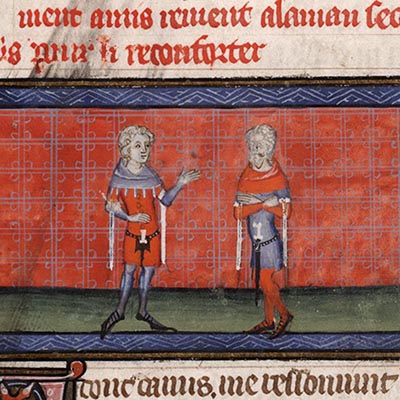 ment amis reuient alaman sec
pour li reconforter
donc amis, me ressouuint